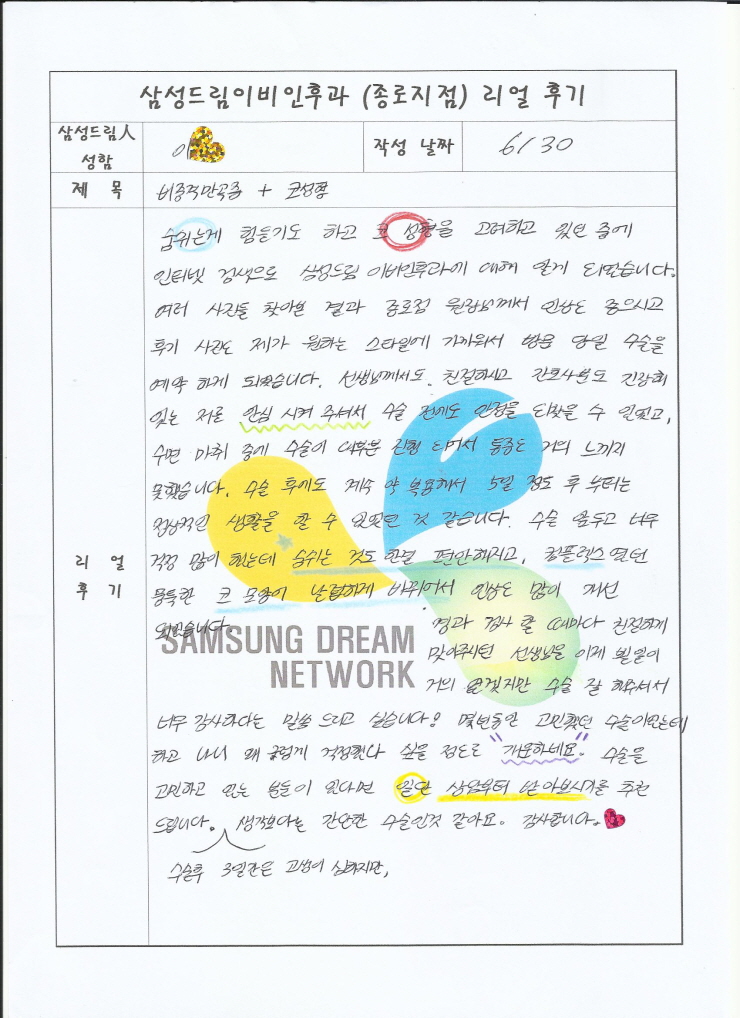 삼성드림이비인후과 (종로지점) 리얼 후기
삼성드림人
성함
이
작성 날짜
6/30
제 목
비중격만곡증 + 코성형
리 얼
후 기
숨쉬는게 힘들기도 하고 코 성형을 고려하고 있던 중에
인터넷 검색으로 삼성드림 이비인후과에 대해 알게 되었습니다.
여러 사진들 찾아본 결과 종로점 원장님께서 인상도 좋으시고
후기 사진도 제가 원하는 스타일에 가까워서 방문 당일 수술을
예약 하게 되었습니다. 선생님께서도 친절하시고 간호사분도 긴장해
있는 저를 안심 시켜 주셔서 수술 전에도 안정을 되찾을 수 있었고,
수면 마취 중에 수술이 대부분 진행 되어서 통증도 거의 느끼지
못했습니다. 수술 후에도 계속 약 복용해서 5일 정도 후 부터는
정상적인 생활을 할 수 있었던 것 같습니다. 수술 앞두고 너무
걱정 많이 했는데 숨쉬는 것도 한결 편안해지고, 컴플렉스였던
뭉뚝한 코 모양이 날렵하게 바뀌어서 인상도 많이 개선
되었습니다.
경과 검사 할 때마다 친절하게
맞아주시던 선생님을 이제 뵐일이
거의 없겠지만 수술 잘 해주셔서
SAMSUNG DREAM
NETWORK
너무 감사하다는 말씀 드리고 싶습니다! 몇년동안 고민했던 수술이었는데
하고 나니 왜 그렇게 걱정했나 싶을 정도로 "개운하네요". 수술을
고민하고 있는 분들이 있다면 일단 상담부터 받아보시기를 추천
드립니다. 생각보다는 간단한 수술인것 같아요. 감사합니다.
수술후 3일간은 고생이 심하지만,